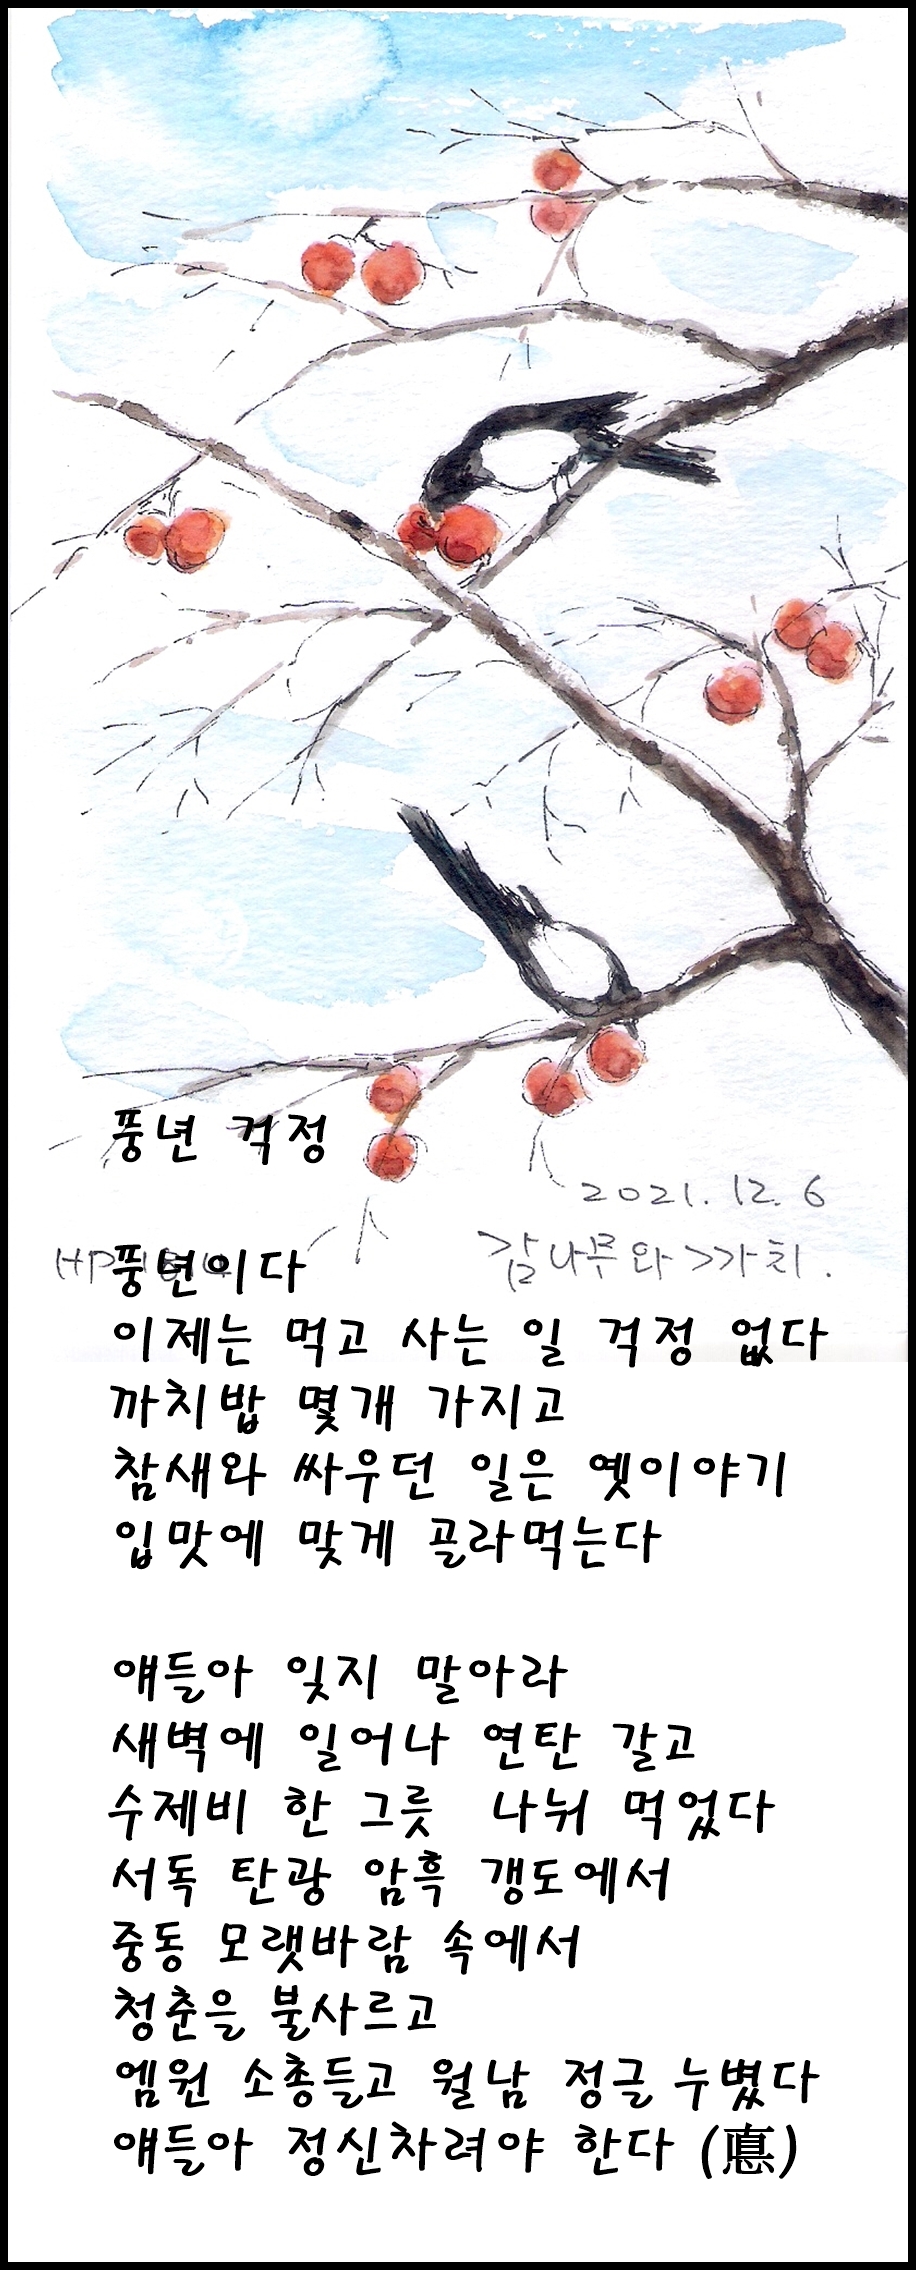 풍년 걱정
2021. 12. 6
감나무와 까치.
풍년이다
이제는 먹고 사는 일 걱정 없다
까치밥 몇개 가지고
참새와 싸우던 일은 옛이야기
입맛에 맞게 골라먹는다
얘들아 잊지 말아라
새벽에 일어나 연탄 갈고
수제비 한 그릇 나눠 먹었다
서독 탄광 암흑 갱도에서
중동 모랫바람 속에서
청춘을 불사르고
엠원 소총들고 월남 정글 누볐다
얘들아 정신차려야 한다 (悳)